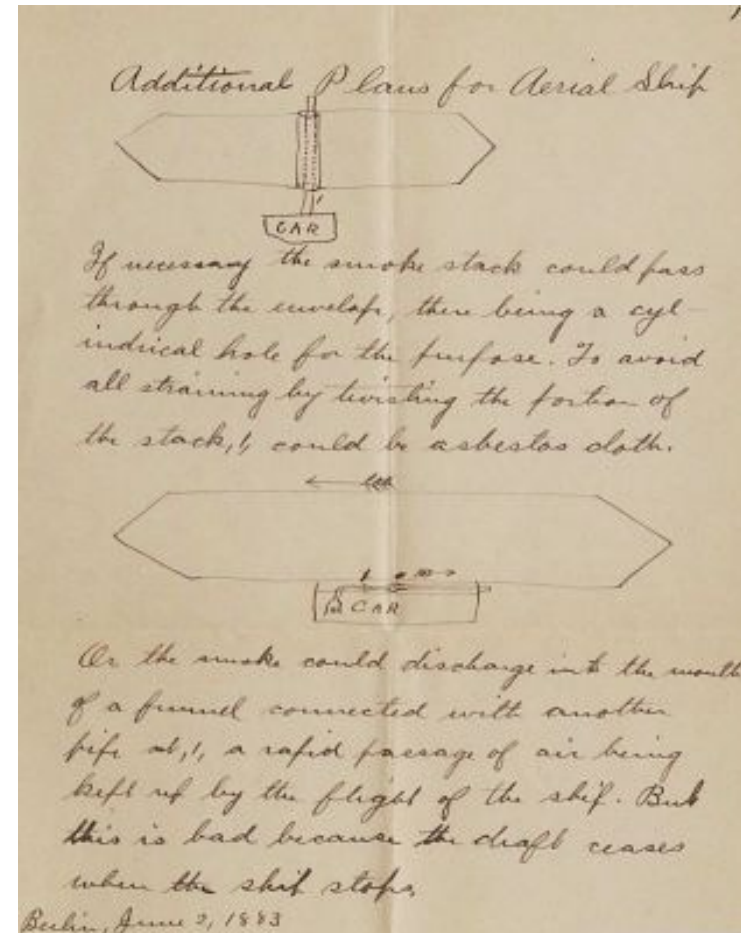 Additional Plans for Aerial Ship
CAR
If necessary the smoke stack could pass
through the envelop, there being a cyl-
indrical hole for the purpose. To avoid
all straining by twisting the portion of
the stack, 1, could be asbestos cloth.
CAR
Or the smoke could discharge into the mouth
of a funnel connected with another
pipe at, 1, a rapid passage of air being
kept up by the flight of the ship. But
this is bad because the draft ceases
when the ship stops.
Berlin, June 2, 1883